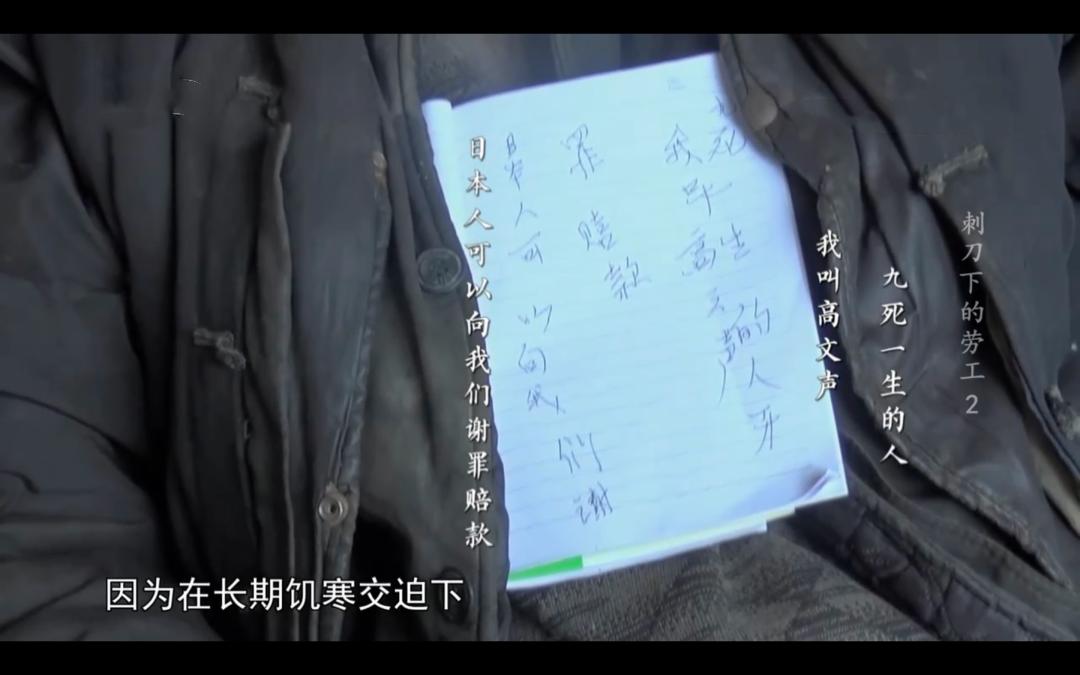 刺刀下的劳工2
九死一生的人
我叫高文声
日本人可以向我们谢罪赔款
生的人
我叫高文声
罪赔款
日本人可以向我们谢
因为在长期饥寒交迫下